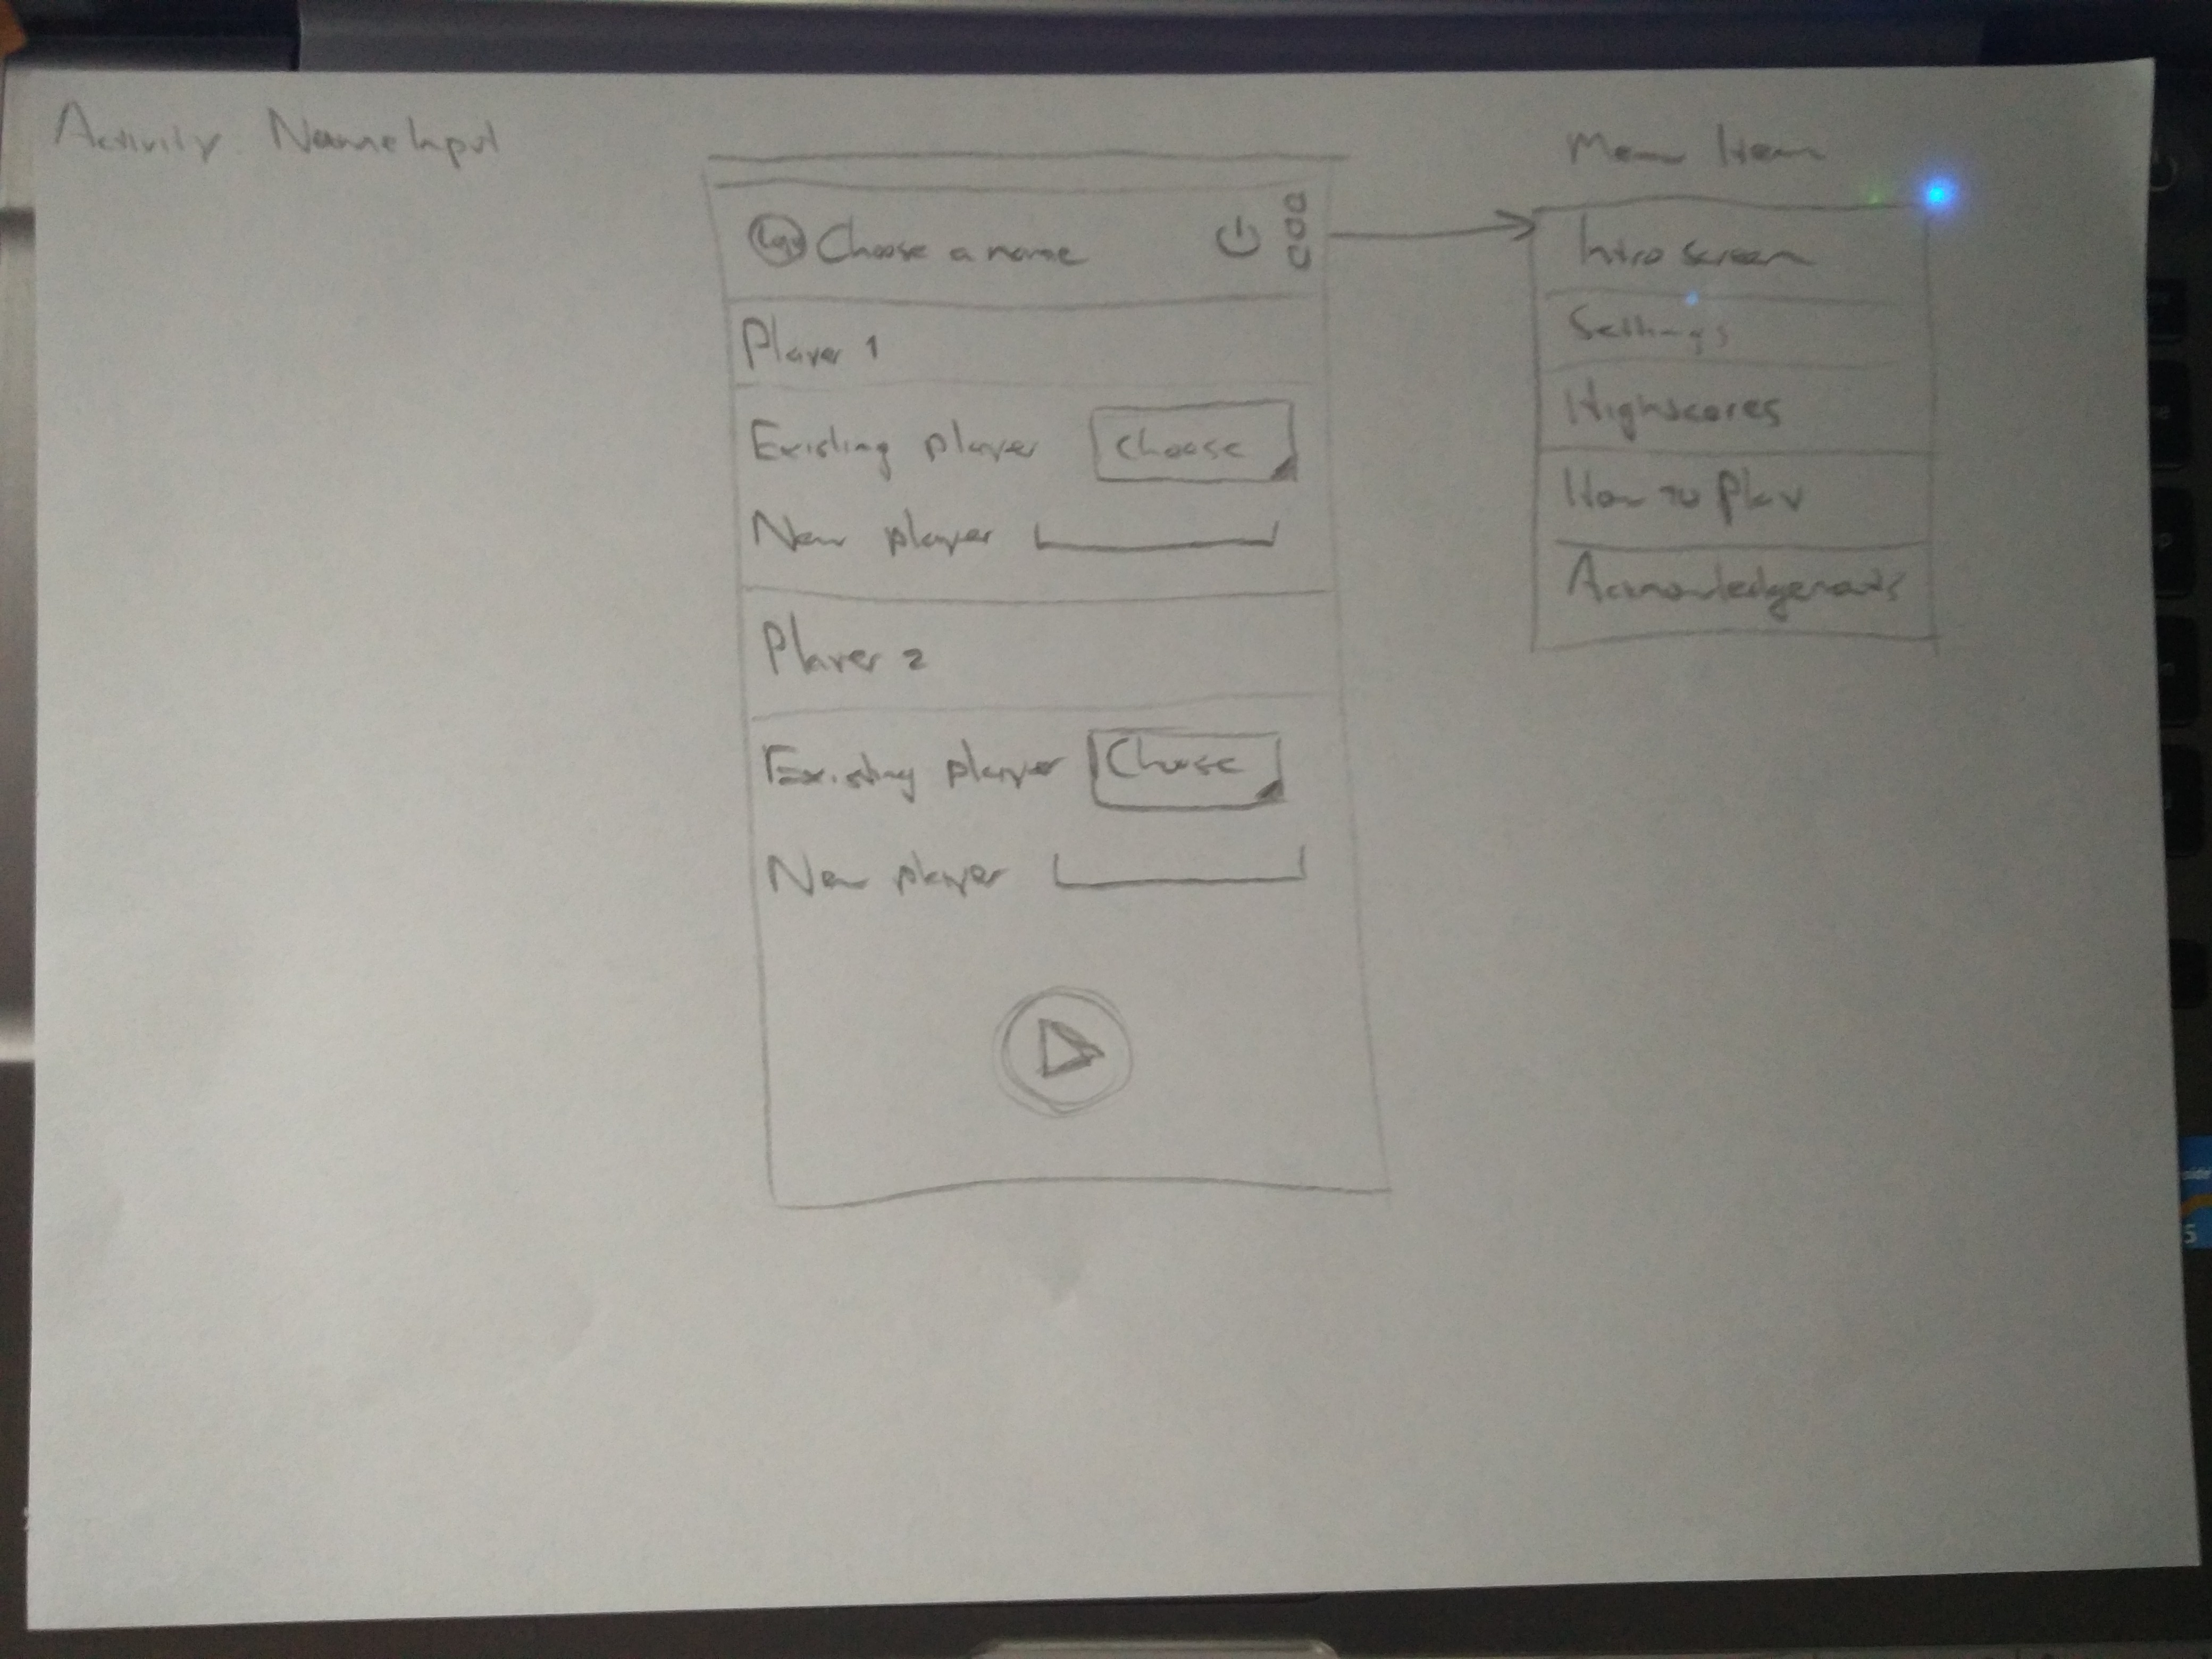 Activity: NameInput
Menu Item
Logo Choose a name
Player 1
Existing player Choose
New player
Player 2
Existing player Choose
New player
Intro screen
Settings
Highscores
How to Play
Acknowledgements
5